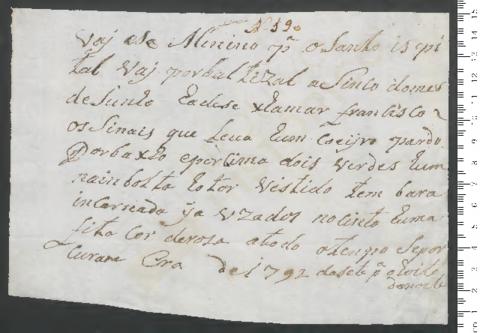 N 590
Vaj este Minino pª o Santo ispi
tal vaj por baltizal a sinco do mes
de Junho e a de se xhamar franCisco
os Sinais que leva hum Coejro pardo
por baxho e por sima dois verdes hum
na in bolta e o tor vestido tem bara
incarnado ja uzados no Cinto huma
fita Cor de rosa a todo o tenpo Se por
Curara Era de 1792